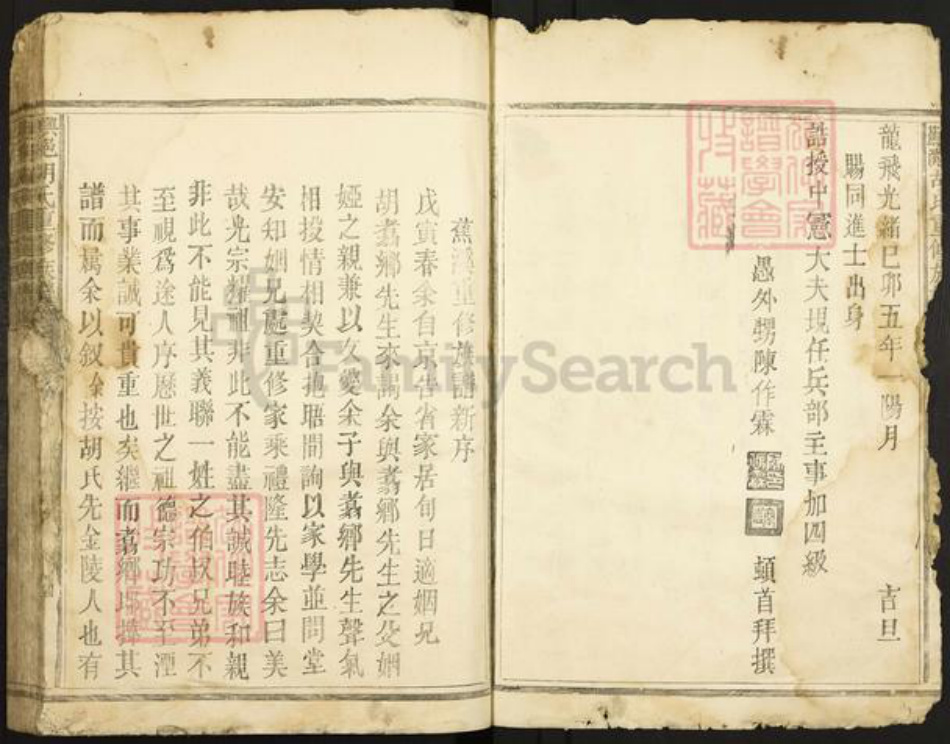 龍飛光緒巳卯五年一陽月　吉旦
賜同進士出身
誥授中憲大夫現任兵部主事加四級
愚外甥陳作霖　頓首拜撰
蕉溪重修族譜新序
戊寅春余自京告省家居旬日適姻兄
胡翥鄉先生來謁余與翥鄉先生之父姻
婭之親兼以久愛余子與翥鄉先生聲氣
相投情相契合抱晤間詢以家學並問堂
安知姻兄處重修家乘禮隆先志余曰美
哉光宗耀祖非此不能盡其誠睦族和親
非此不能見其義聯一姓之伯叔兄弟不
至視爲途人序歷世之祖德宗功不至湮
其事業誠可貴重也矣繼而翥鄉 其
譜而屬余以叙 按胡氏先金陵人也有
胡氏重修族
FamilySearch